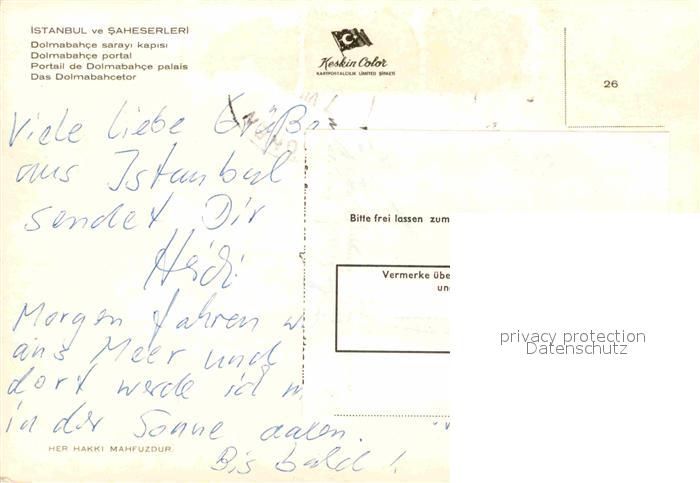 İSTANBUL ve ŞAHESERLERİ
Dolmabahçe sarayı kapısı
Dolmabahçe portal
Portail de Dolmabahçe palais
Das Dolmabahcetor
Keskin Color
KARTPOSTALCILIK LIMITED ŞİRKETİ
26
Viele liebe Grüße
aus Istanbul
sendet Dir
Heidi
Morgen fahren w
ans Meer und
dort werde ich m
in der Sonne aalen.
Bis bald!
HER HAKKI MAHFUZDUR
Bitte frei lassen zum
Vermerke übe
un
privacy protection
Datenschutz